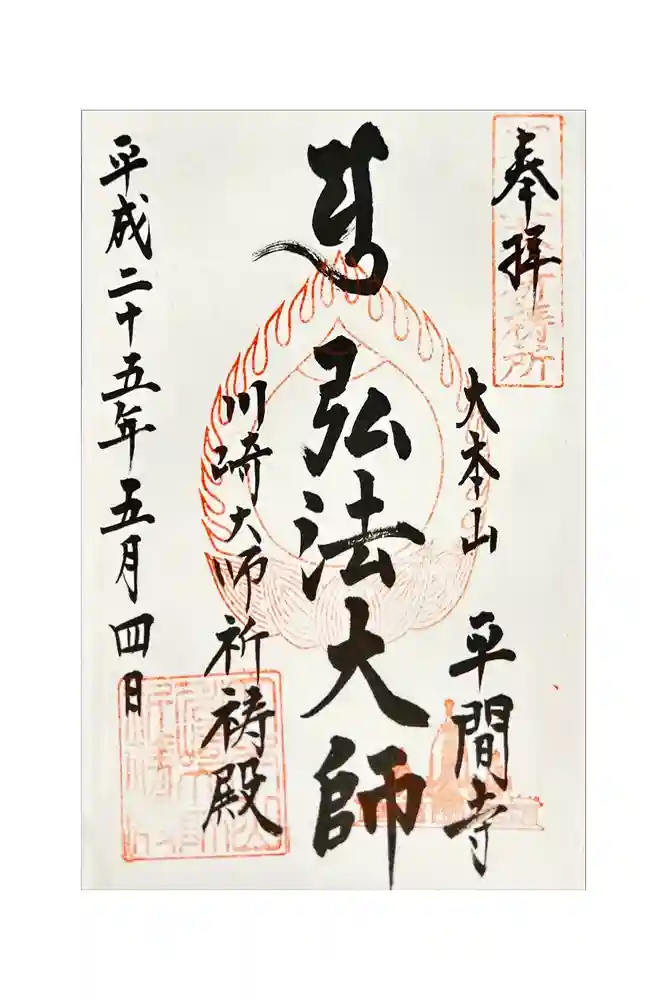 奉拝
大本山
平間寺
弘法大師
川崎大師祈祷殿
平成二十五年五月四日